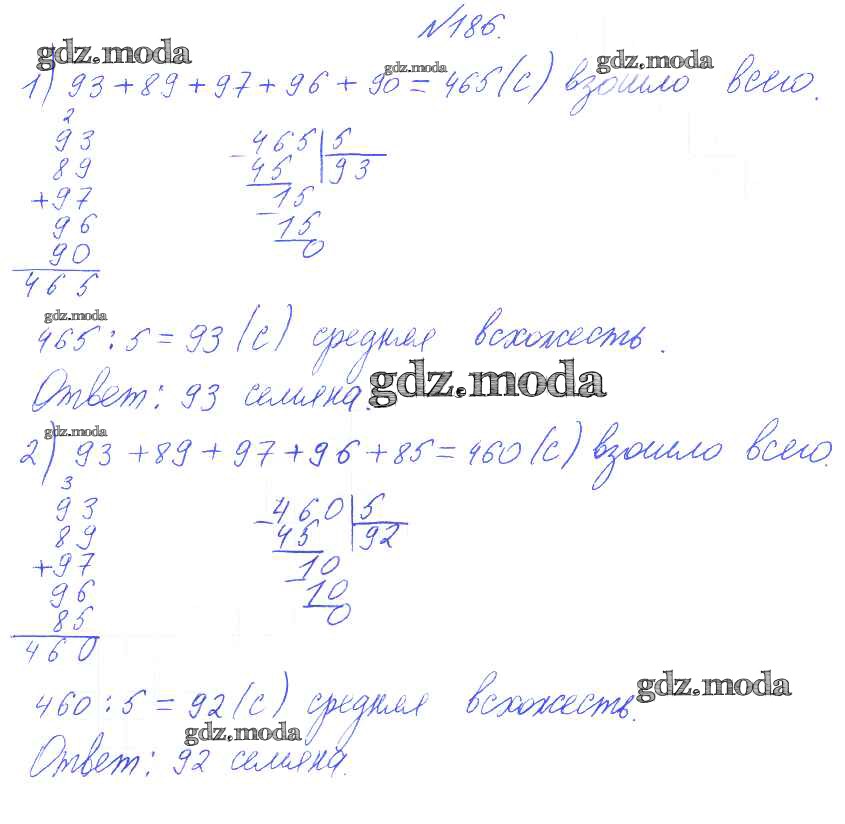 №186.
gdz.moda
gdz.moda
gdz.moda
1) 93+89+97+96+90=465(с) взошло всего.
2
93
89
+97
96
90
465
-465|5
45 93
-15
15
0
gdz.moda
465:5=93(с) средняя всхожесть.
gdz.moda
Ответ: 93 семяна.
gdz.moda
2) 93+89+97+96+85=460(с) взошло всего.
3
93
89
+97
96
85
460
-460|5
45 92
-10
10
0
gdz.moda
460:5=92(с) средняя всхожесть.
gdz.moda
Ответ: 92 семяна.